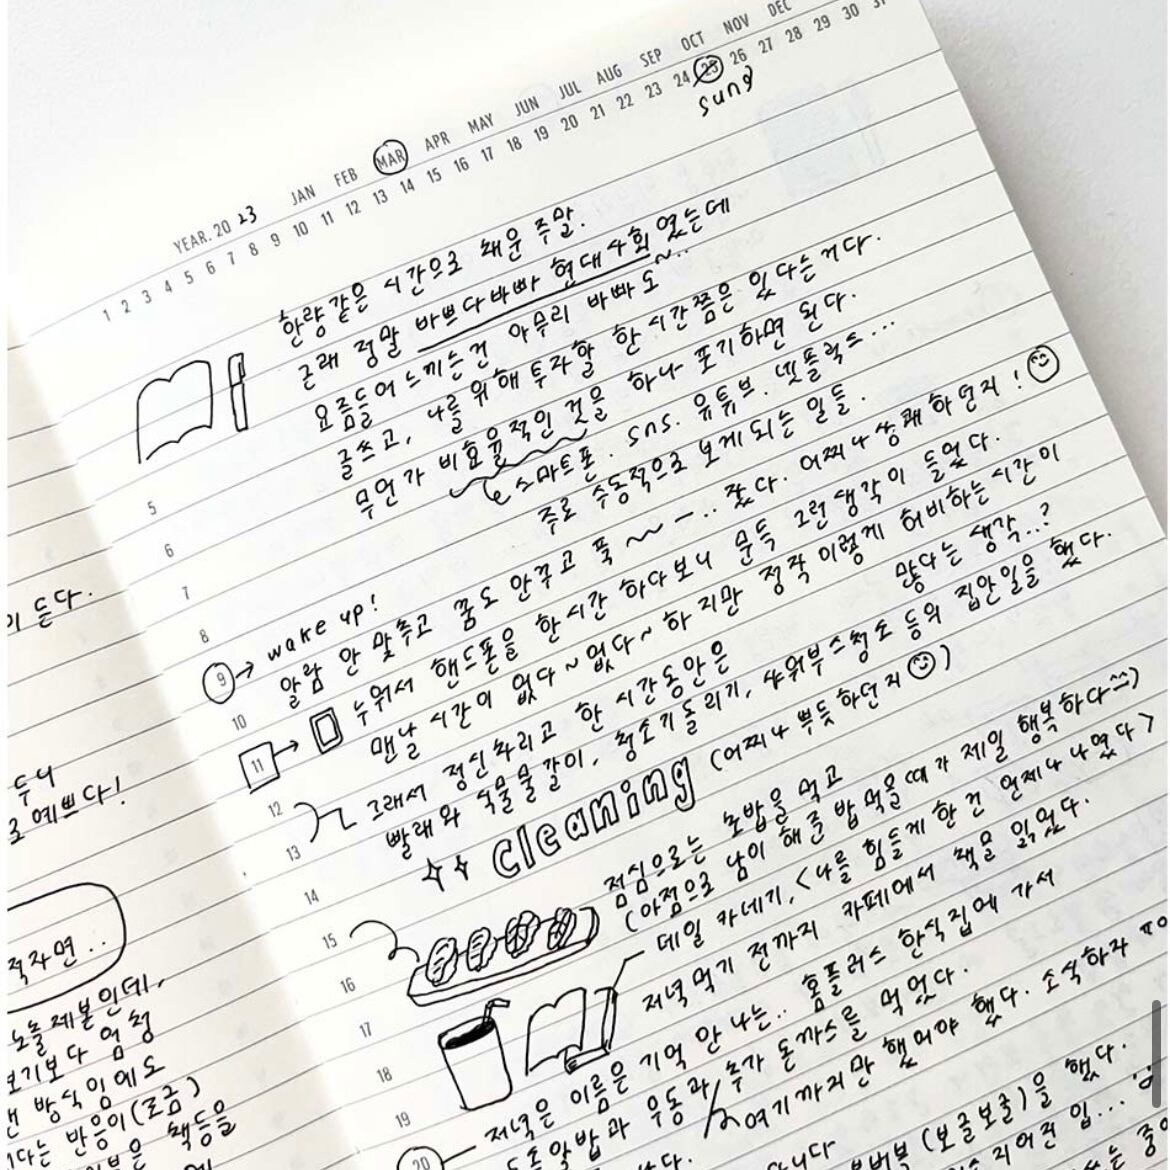 YEAR. 20 23 JAN FEB MAR APR MAY JUN JUL AUG SEP OCT NOV DEC
1 2 3 4 5 6 7 8 9 10 11 12 13 14 15 16 17 18 19 20 21 22 23 24 25 26 27 28 29 30 31
sung
한량같은 시간으로 채운 주말.
근래 정말 바쁘다바빠 현대사회 였는데
요즘들어 느끼는건 아무리 바빠도~..
글쓰고, 나를 위해 투자할 한 시간쯤은 있다는거다.
무언가 비효율적인 것을 하나 포기하면 된다.
스마트폰. sns. 유튜브. 넷플릭스...
주로 수동적으로 보게되는 일들.
5
6
7
8
9 → wake up!
알람 안 맞추고 꿈도 안꾸고 푹 ~~ー.. 잤다. 어찌나 상쾌하던지!
10
11 → 누워서 핸드폰을 한시간 하다보니 문득 그런 생각이 들었다.
맨날 시간이 없다~없다~ 하지만 정작 이렇게 허비하는 시간이
많다는 생각..?
12
그래서 정신차리고 한 시간동안은
13
빨래와 식물물갈이, 청소기돌리기, 샤워부스청소 등의 집안일을 했다.
cleaning (어찌나 뿌듯하던지)
14
15
점심으로는 초밥을 먹고
(아점으로 남이 해준 밥 먹을때가 제일 행복하다^^)
16
데일 카네기, <나를 힘들게 한건 언제나 나였다>
17
저녁먹기 전까지 카페에서 책을 읽었다.
18
19
저녁은 이름은 기억 안 나는.. 홈플러스 한식집에 가서
20
알밥과 우동과/추가 돈까스를 먹었다.
여기까지만 했어야 했다. 소식하자
(보글보글)을 했다.
이 든다.
두니
예쁘다!
적자면..
노출제본인데,
보기보다 엄청
방식임에도
반응이(조금)
책등을